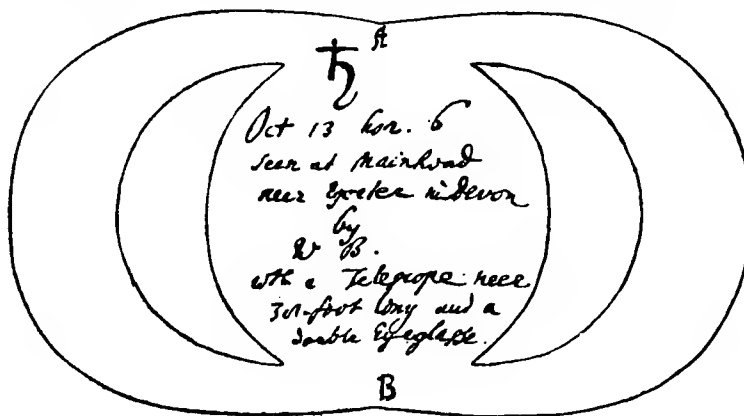 A
♄
Oct 13 hor. 6
seen at Mainhead
neer Exeter in Devon
by
W B.
wth a Telescope neer
38-foot long and a
double Eyeglasse.
B